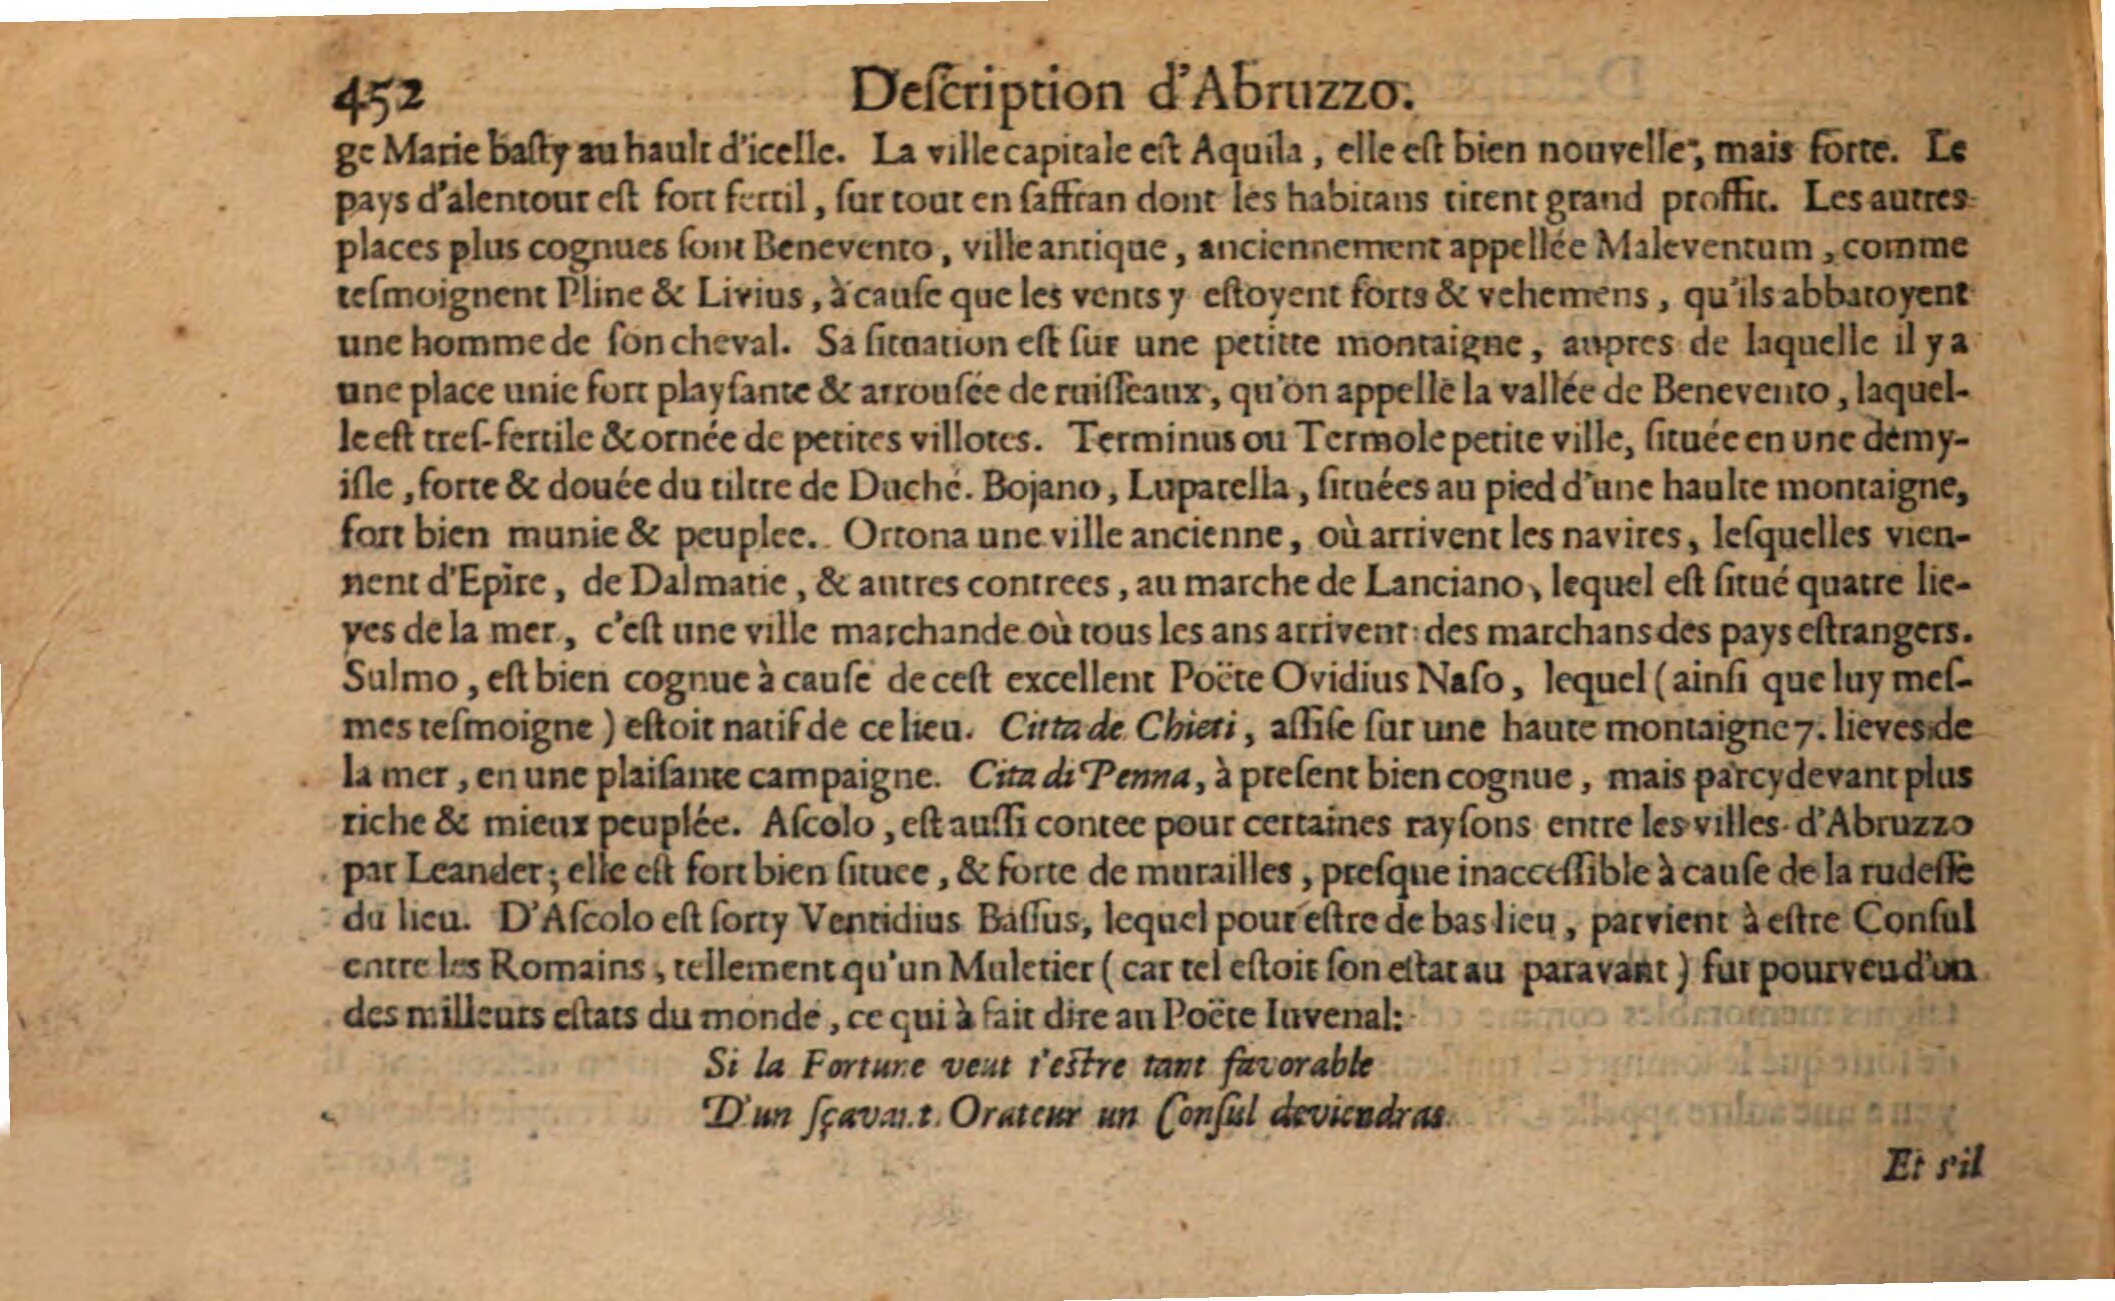 452 Deſcription d'Abruzzo.
ge Marie baſty au hault d'icelle. La ville capitale eſt Aquila, elle eſt bien nouvelle, mais forte. Le
pays d'alentour eſt fort fertil, ſur tout en ſaffran dont les habitans tirent grand proffit. Les autres
places plus cognues ſont Benevento, ville antique, anciennement appellée Maleventum, comme
teſmoignent Pline & Livius, à cauſe que les vents y eſtoyent forts & vehemens, qu'ils abbatoyent
une homme de ſon cheval. Sa ſituation eſt ſur une petitte montaigne, aupres de laquelle il y a
une place unie fort playſante & arrouſée de ruiſſeaux, qu'on appelle la vallée de Benevento, laquel-
le eſt treſ-fertile & ornée de petites villotes. Terminus ou Termole petite ville, ſituée en une demy-
iſle, forte & douée du tiltre de Duché. Bojano, Luparella, ſituées au pied d'une haulte montaigne,
fort bien munie & peuplee. Ortona une ville ancienne, où arrivent les navires, leſquelles vien-
nent d'Epire, de Dalmatie, & autres contrees, au marche de Lanciano, lequel eſt ſitué quatre lie-
ves de la mer, c'eſt une ville marchande où tous les ans arrivent des marchans des pays eſtrangers.
Sulmo, eſt bien cognue à cauſe de ceſt excellent Poëte Ovidius Naſo, lequel (ainſi que luy meſ-
mes teſmoigne) eſtoit natif de ce lieu. Citta de Chieti, aſſiſe ſur une haute montaigne 7. lieves de
la mer, en une plaiſante campaigne. Cita di Penna, à preſent bien cognue, mais parcydevant plus
riche & mieux peuplée. Aſcolo, eſt auſſi contee pour certaines rayſons entre les villes d'Abruzzo
par Leander; elle eſt fort bien ſituee, & forte de murailles, preſque inacceſſible à cauſe de la rudeſſe
du lieu. D'Aſcolo eſt ſorty Ventidius Baſſus, lequel pour eſtre de bas lieu, parvient à eſtre Conſul
entre les Romains, tellement qu'un Muletier (car tel eſtoit ſon eſtat au paravant) fut pourveu d'un
des milleurs eſtats du monde, ce qui à fait dire au Poëte Iuvenal:
Si la Fortune veut t'eſtre tant favorable
D'un ſçavant Orateur un Conſul deviendras.
Et s'il